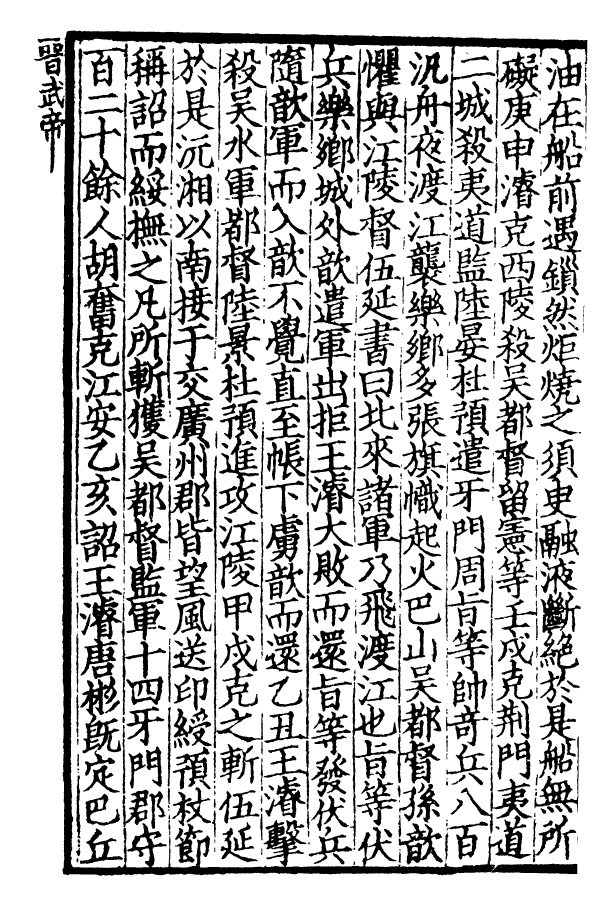 油在船前遇鎖然炬燒之須臾融液斷絕於是船無所
礙庚申濬克西陵殺吴都督留憲等壬戌克荆門夷道
二城殺夷道監陸晏杜預遣牙門周旨等帥竒兵八百
汎舟夜渡江襲樂鄉多張旗幟起火巴山吴都督孫歆
懼與江陵督伍延書曰北來諸軍乃飛渡江也旨等伏
兵樂鄉城外歆遣軍出拒王濬大敗而還旨等發伏兵
隨歆軍而入歆不覺直至帳下虜歆而還乙丑王濬擊
殺吴水軍都督陸景杜預進攻江陵甲戌克之斬伍延
於是沅湘以南接于交廣州郡皆望風送印綬預杖節
稱詔而綏撫之凡所斬獲吴都督監軍十四牙門郡守
百二十餘人胡奮克江安乙亥詔王濬唐彬既定巴丘
晉武帝